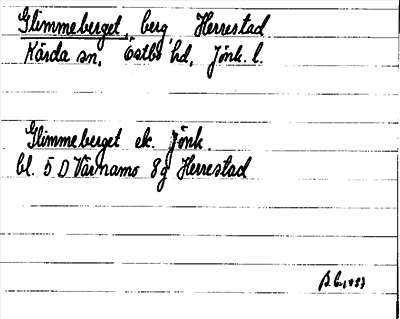 Glimmeberget, berg, Herrestad
Kärda sn, Östbo hd, Jönk. l.
Glimmeberget ek. Jönk.
bl. 5 D Värnamo 8g Herrestad